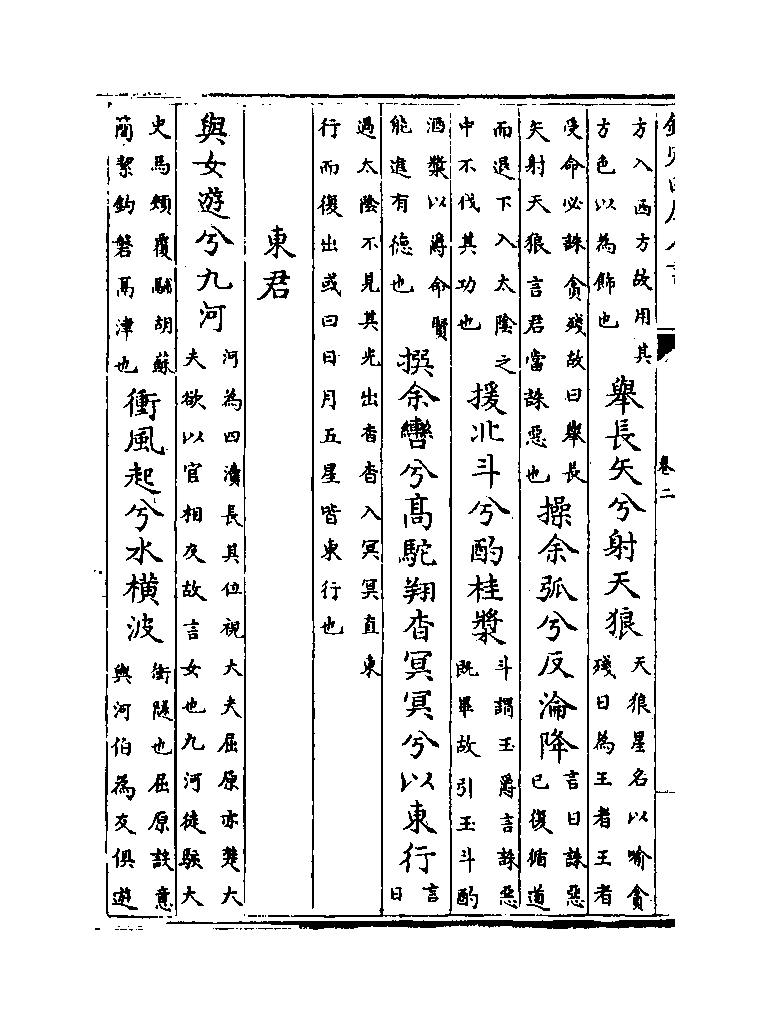 卷二
方入西方故用其
方色以為飾也
舉長矢兮射天狼
天狼星名以喻貪
殘日為王者王者
受命必誅貪殘故曰舉長
矢射天狼言君當誅惡也
操余弧兮反淪降
言日誅惡
已復循道
而退下入太陰之
中不伐其功也
援北斗兮酌桂漿
斗謂玉爵言誅惡
既畢故引玉斗酌
酒漿以爵命賢
能進有德也
撰余轡兮高駝翔杳冥冥兮以東行
言
日
過太陰不見其光出杳杳入冥冥直東
行而復出或曰日月五星皆東行也
東君
與女遊兮九河
河為四瀆長其位視大夫屈原亦楚大
夫欲以官相友故言女也九河徒駭大
史馬頰覆鬴胡蘇
簡絜鉤磐鬲津也
衝風起兮水橫波
衝隧也屈原設意
與河伯為友俱遊